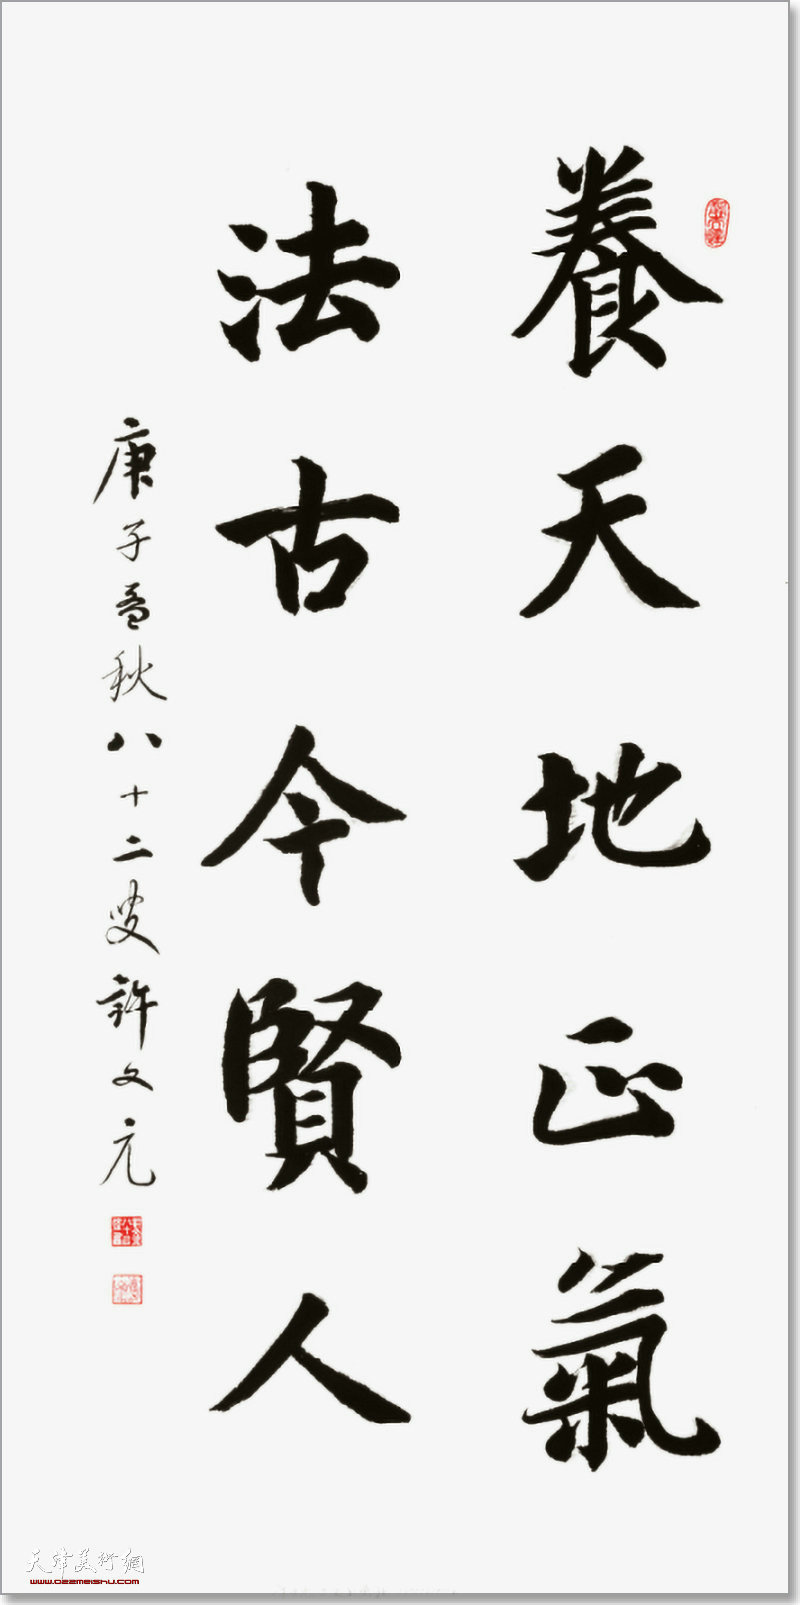 養天地正氣
法古今賢人
庚子孟秋八十二叟許文元
天津美術網
www.022meishu.com